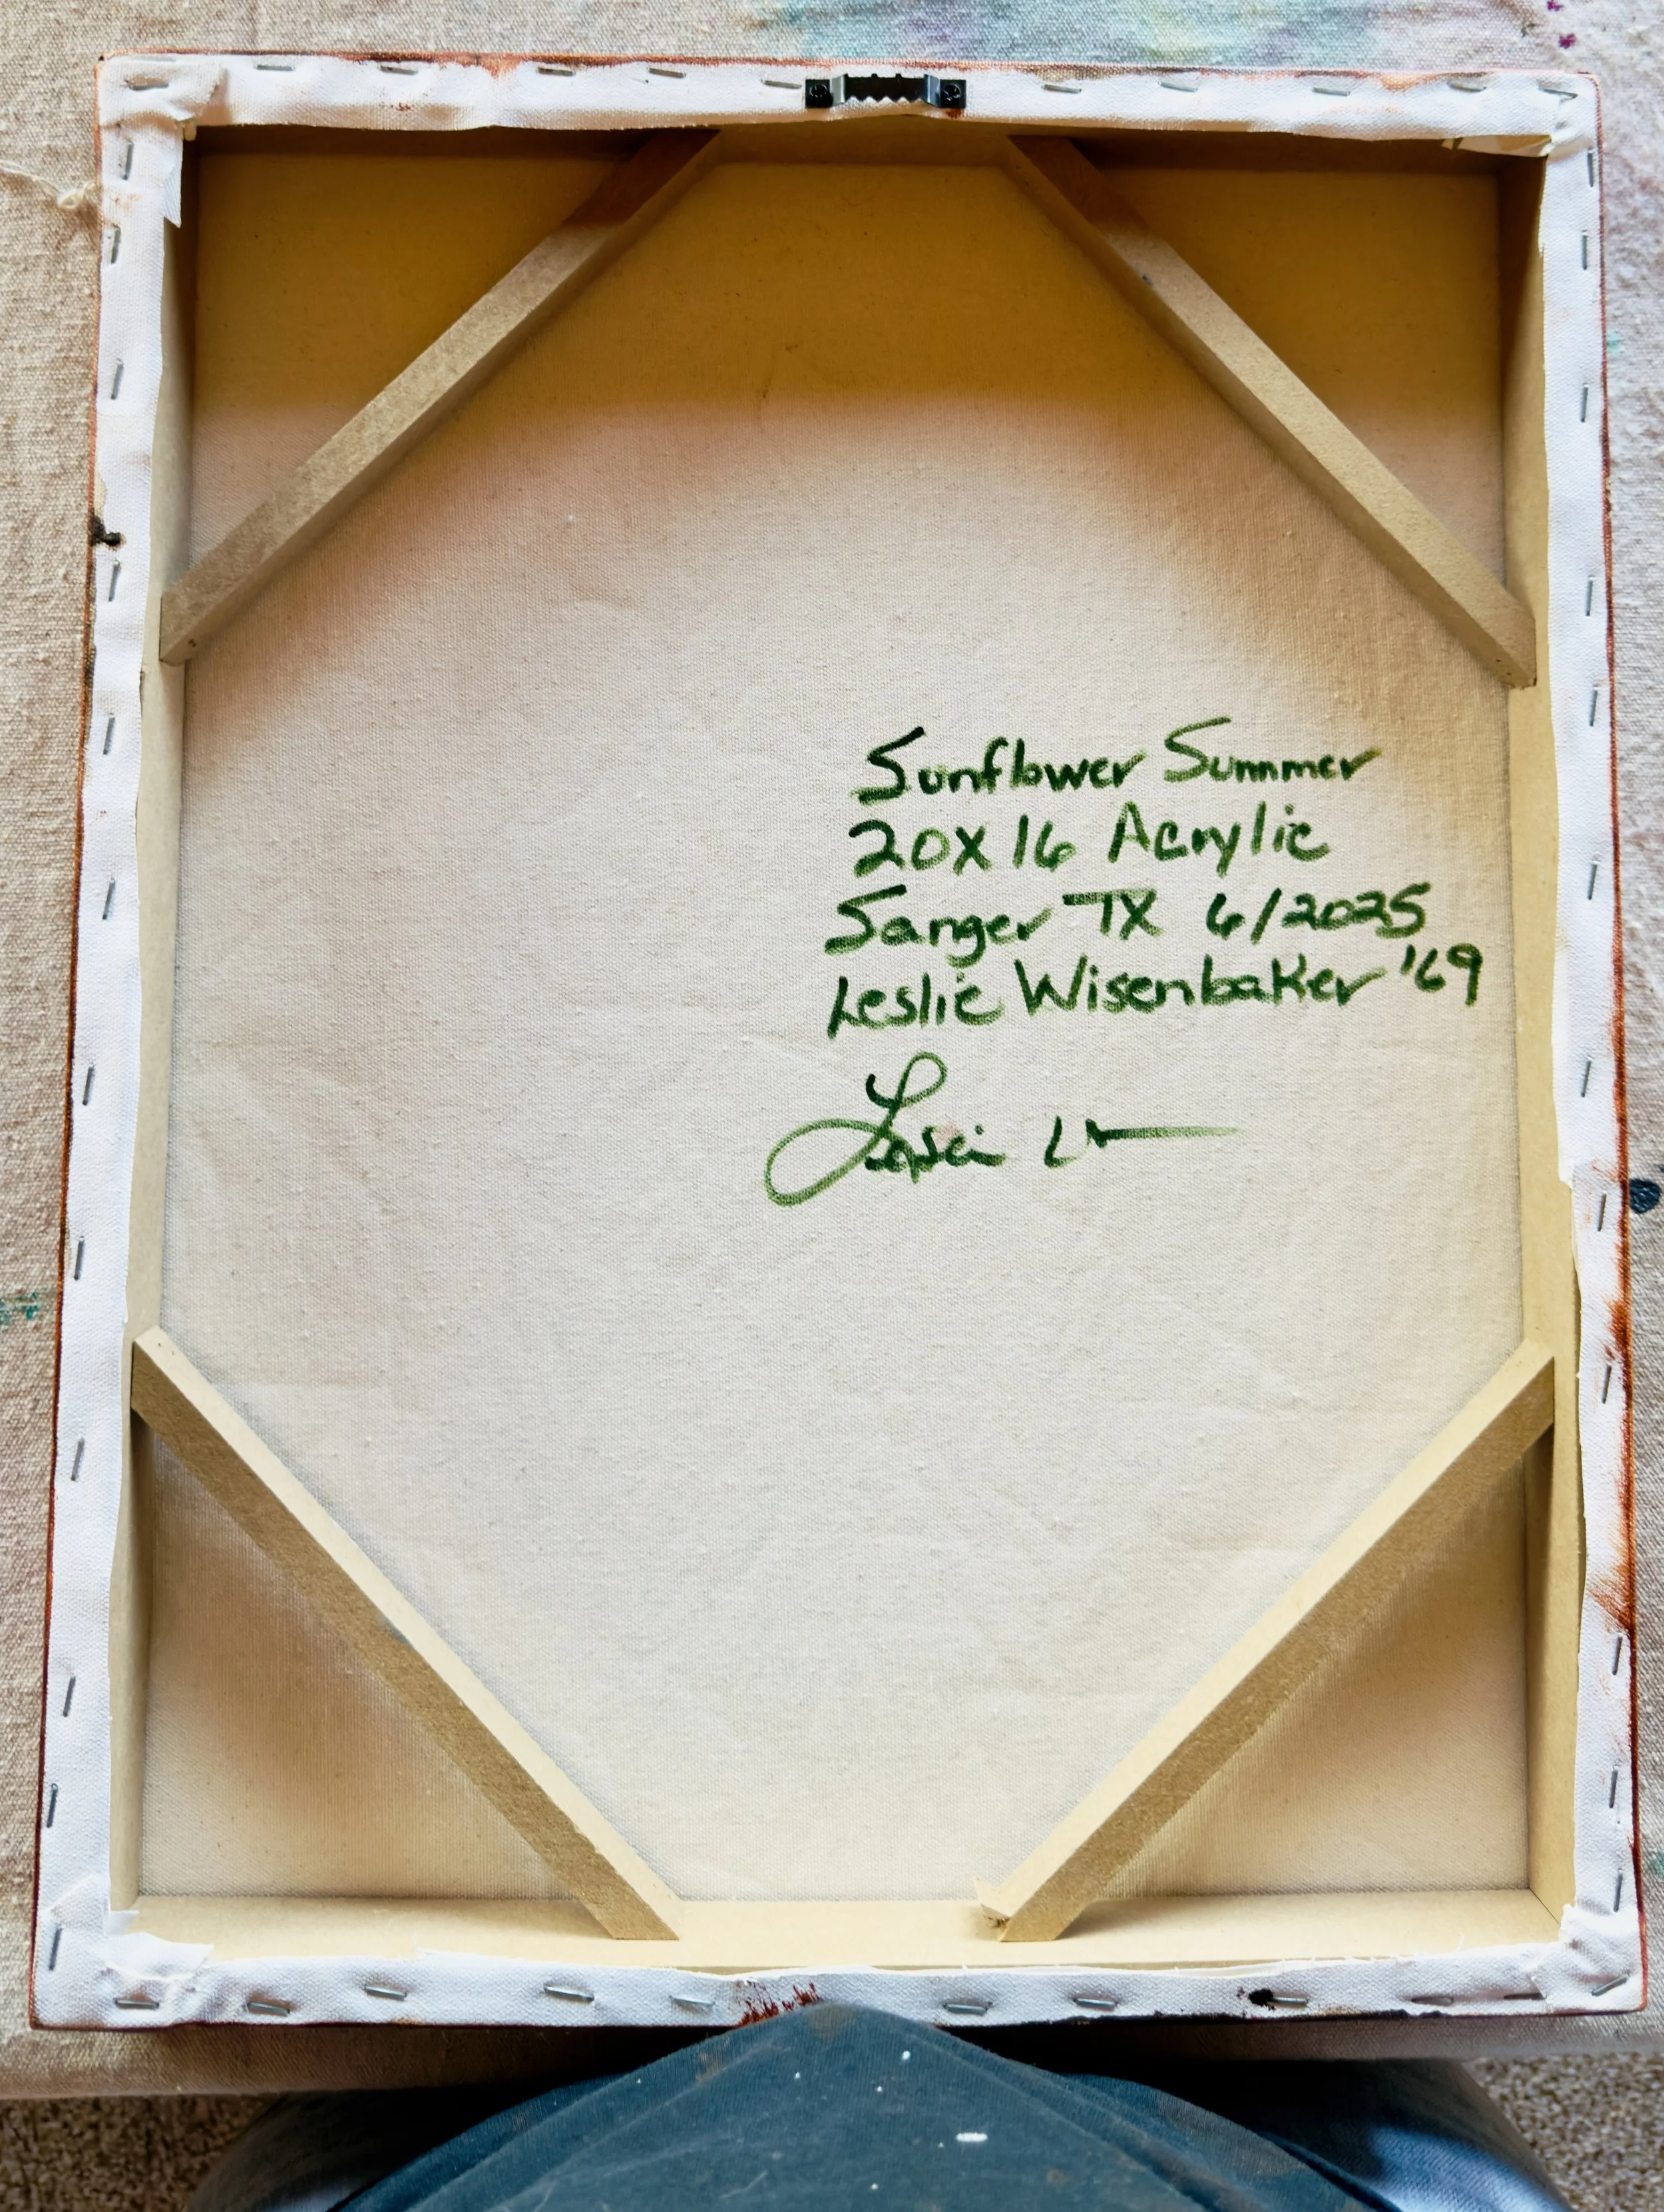 Sunflower Summer
20X16 Acrylic
Sanger TX 6/2025
Leslie Wisenbaker '69
Leslie